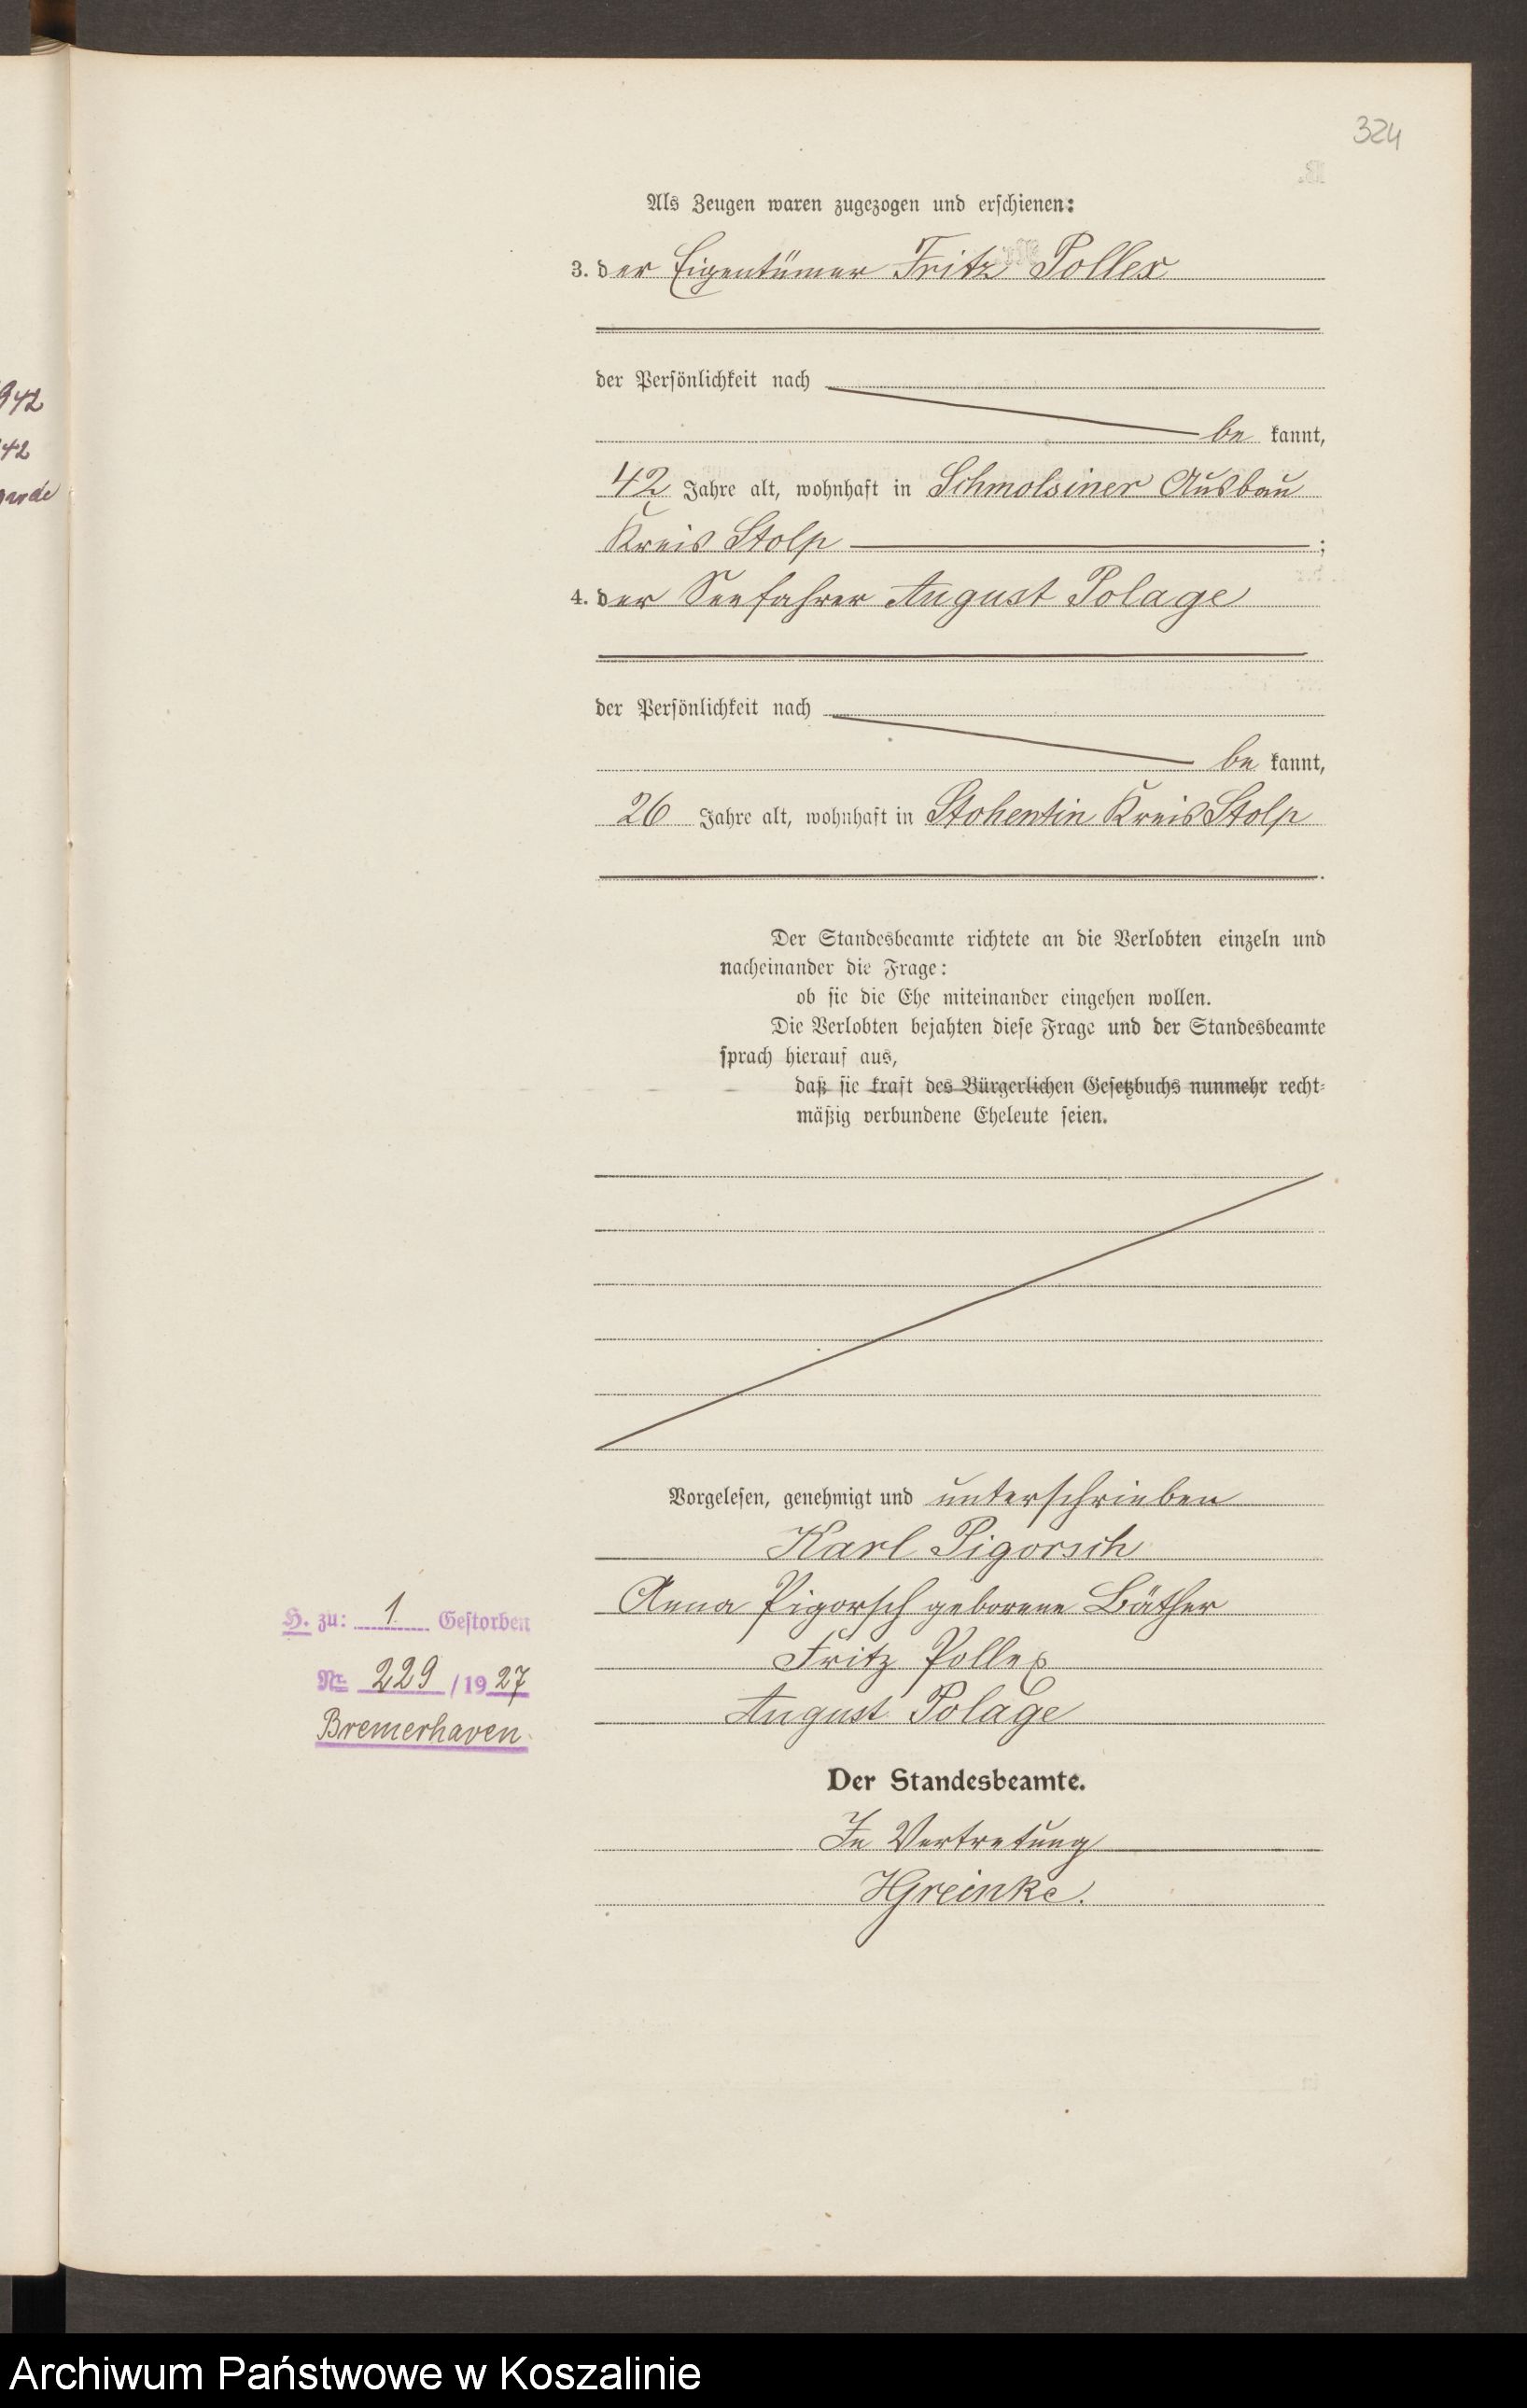 324
942
42
Als Zeugen waren zugezogen und erschienen:
3. der Eigentümer Fritz Pollex
der Persönlichkeit nach
be kannt,
42 Jahre alt, wohnhaft in Schmolsiner Ausbau
Kreis Stolp ;
4. der Seefahrer August Polage
der Persönlichkeit nach
be kannt,
26 Jahre alt, wohnhaft in Stohentin Kreis Stolp
.
Der Standesbeamte richtete an die Verlobten einzeln und
nacheinander die Frage:
ob sie die Ehe miteinander eingehen wollen.
Die Verlobten bejahten diese Frage und der Standesbeamte
sprach hierauf aus,
daß sie kraft des Bürgerlichen Gesetzbuchs nunmehr recht-
mäßig verbundene Eheleute seien.
Vorgelesen, genehmigt und unterschrieben
Karl Pigorsch
Anna Pigorsch geborene Bäther
Fritz Pollex
August Polage
H. zu: 1 Gestorben
Nr. 229 / 1927
Bremerhaven
Der Standesbeamte.
In Vertretung
HGreinke.
Archiwum Państwowe w Koszalinie